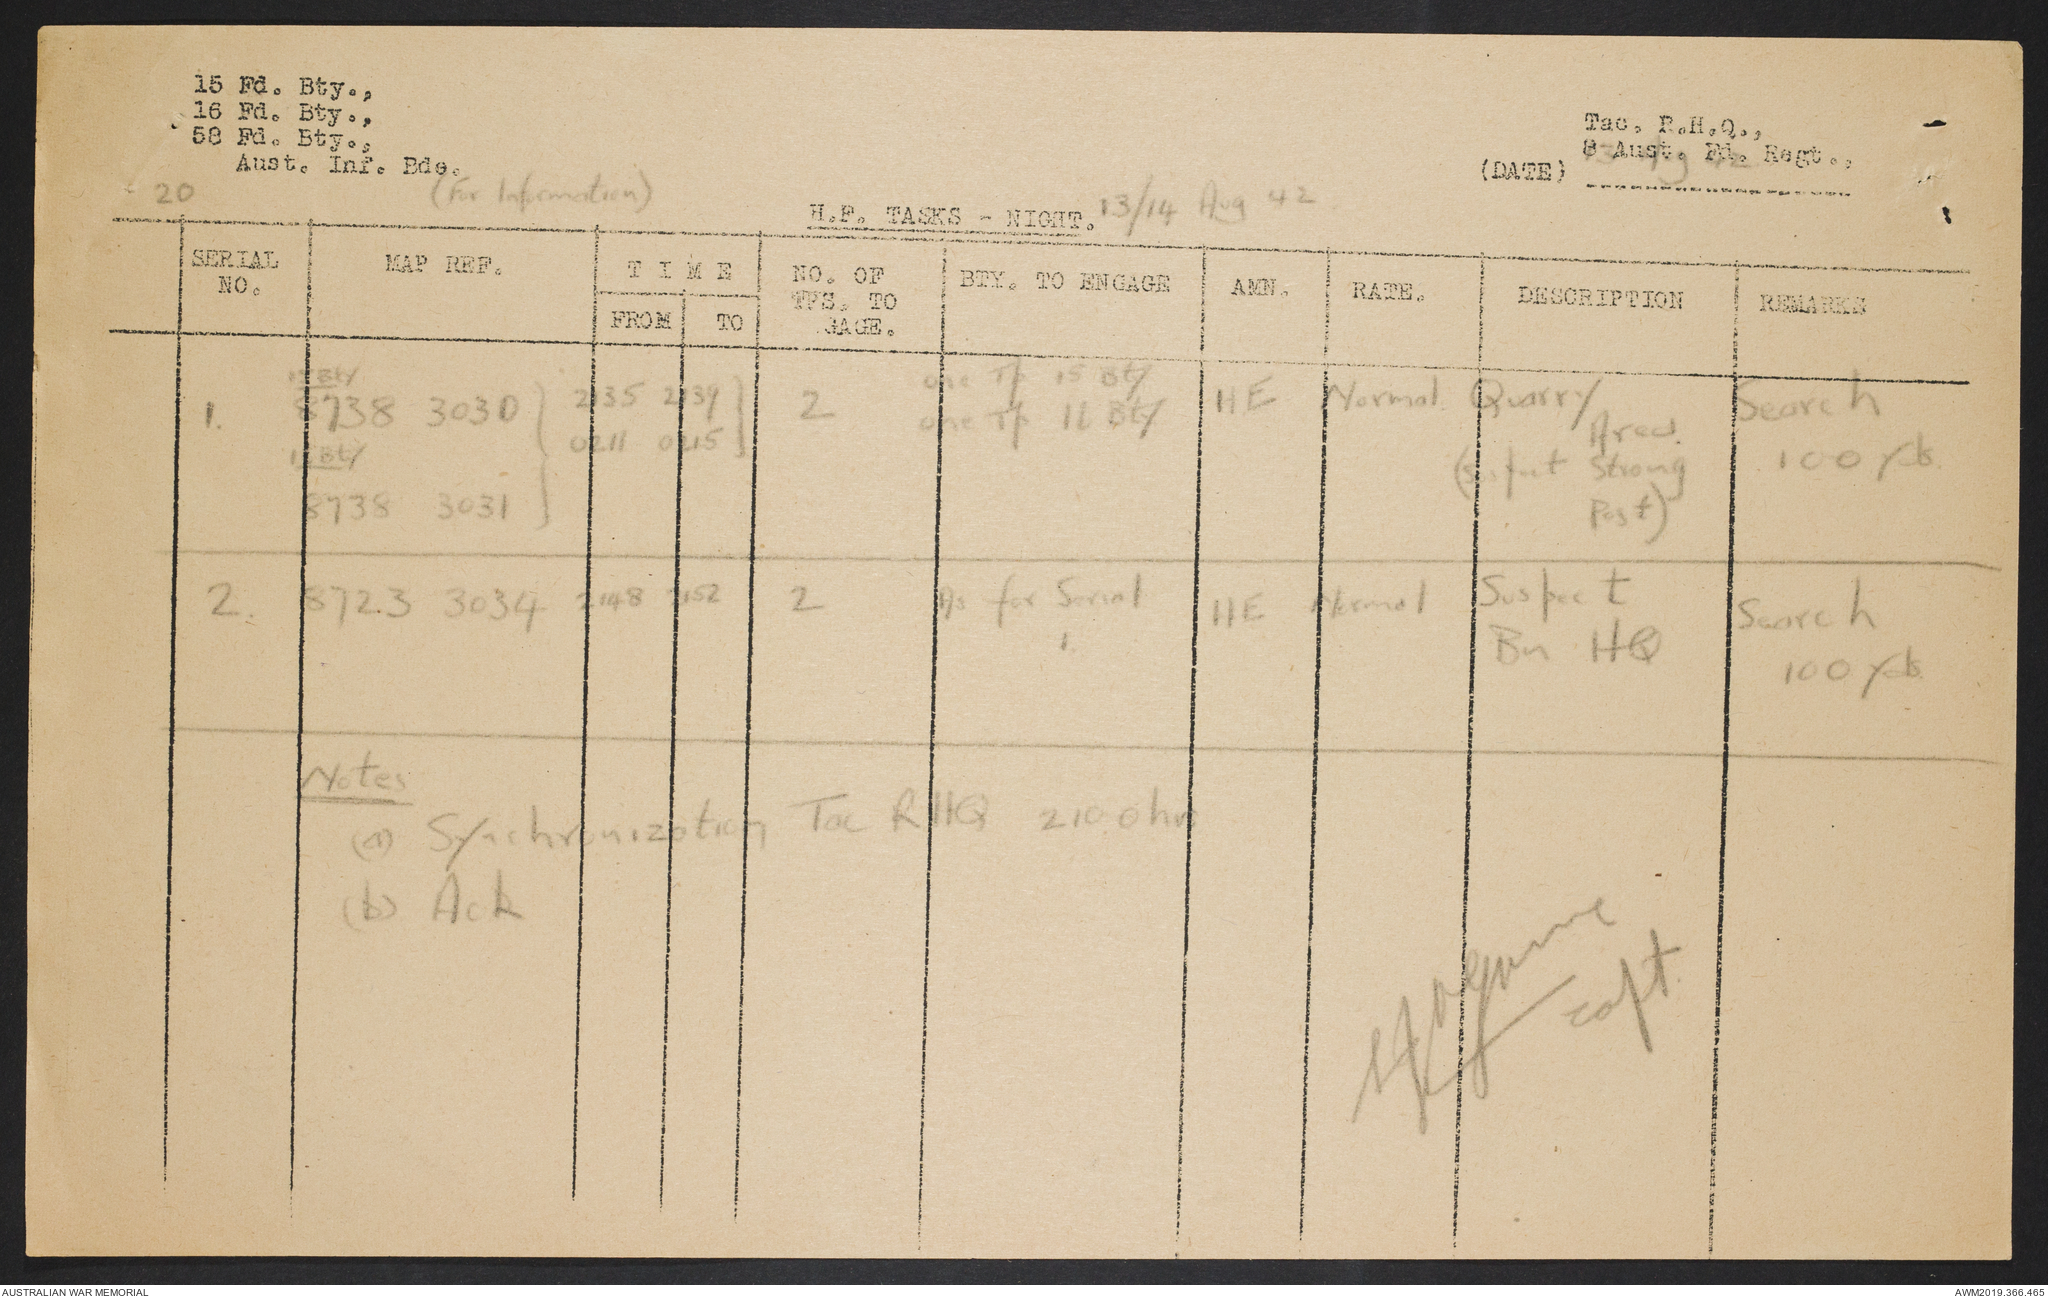 15 Fd. Bty.,
16 Fd. Bty.,
58 Fd. Bty.,
20 Aust. Inf. Bde.
(For Information)
Tac. R.H.Q.,
8 Aust. Fd. Regt.,
(DATE) 13 Aug 42
H.F. TASKS - NIGHT. 13/14 Aug 42
SERIAL NO.
MAP REF.
T I M E
FROM TO
NO. OF TPS. TO GAGE.
BTY. TO ENGAGE
AMN.
RATE.
DESCRIPTION
REMARKS
1.
15 Bty
8738 3030
Bty
8738 3031
2135 2139
0211 0215
2
one Tp 15 Bty
one Tp 16 Bty
HE
Normal
Quarry
Area.
(Suspect Strong
Post)
Search
100 yds.
2.
8723 3034
2148 2152
2
As for Serial
1.
HE
Normal
Suspect
Bn HQ
Search
100 yds.
Notes
(a) Synchronization Tac RHQ 2100 hrs
(b) Ack
Capt.
AUSTRALIAN WAR MEMORIAL
AWM2019.366.465